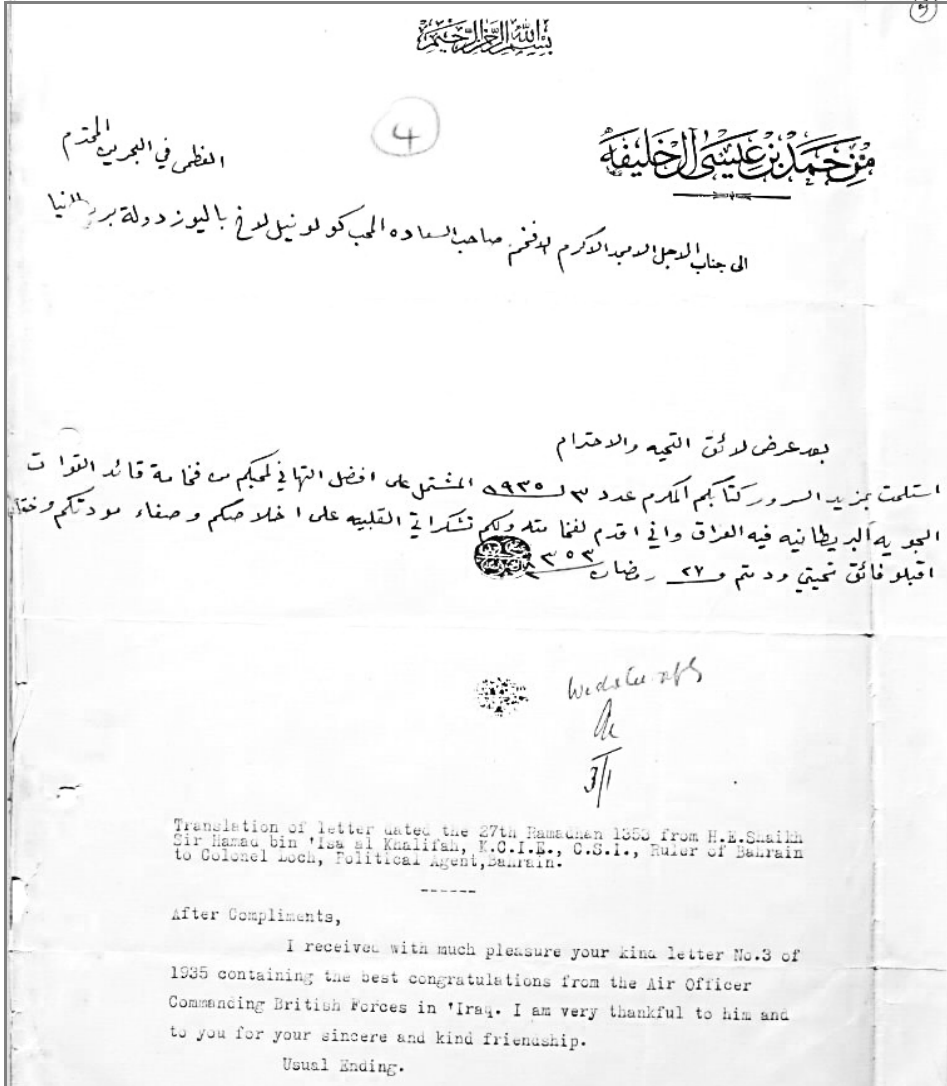 بسم الله الرحمن الرحيم
4
من حمد بن عيسى آل خليفه
العظمى في البحرين المحترم
الى جناب الاجل الامجد الاكرم الافخم صاحب السعاده المحب كولونيل لاخ باليوز دولة بريطانيا
بعد عرض لائق التحيه والاحترام
استلمت بمزيد السرور كتابكم المكرم عدد ٣ لـ ١٩٣٥ المشتمل على افضل التهاني لمحبكم من فخامة قائد القوات
الجويه البريطانيه فيه العراق واني اقدم لفخامته ولكم تشكراتي القلبيه على اخلاصكم وصفاء مودتكم
اقبلو فائق تحيتي ودمتم و ٢٧ رمضان ١٣٥٣
3/1
Translation of letter dated the 27th Ramadhan 1353 from H.E.Shaikh
Sir Hamad bin 'Isa al Khalifah, K.C.I.E., C.S.I., Ruler of Bahrain
to Colonel Loch, Political Agent,Bahrain.
------
After Compliments,
I received with much pleasure your kind letter No.3 of
1935 containing the best congratulations from the Air Officer
Commanding British Forces in 'Iraq. I am very thankful to him and
to you for your sincere and kind friendship.
Usual Ending.